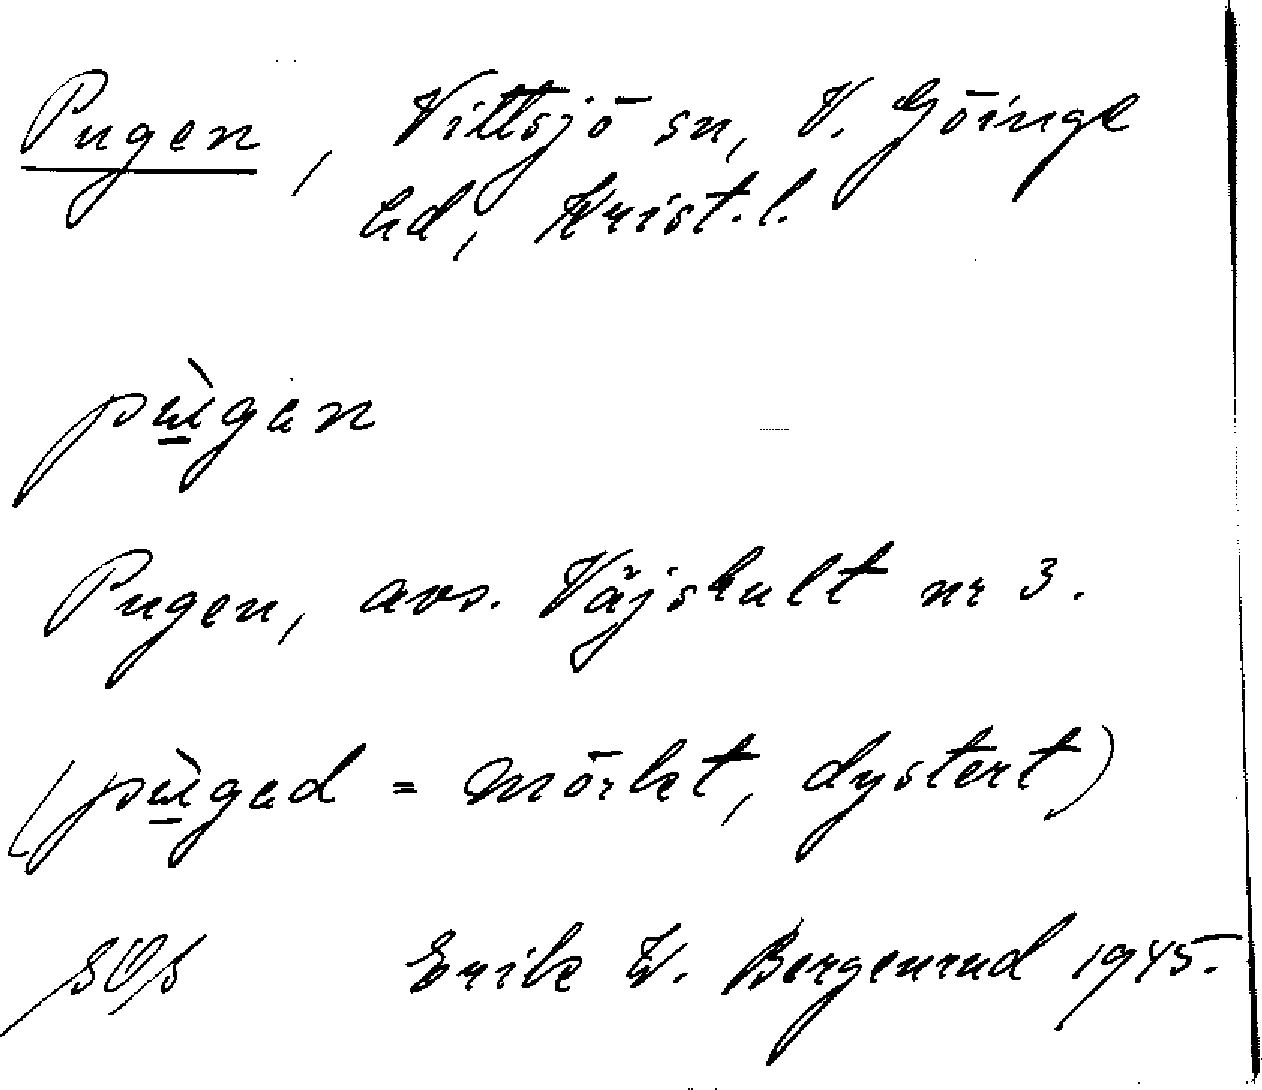 Pugen, Vittsjö sn, V. Göinge
hd, Krist. l.
pùgan
Pugen, avs. Väjshult nr 3.
(pùgad = mörket, dystert)
Erik W. Bergenrud 1945.